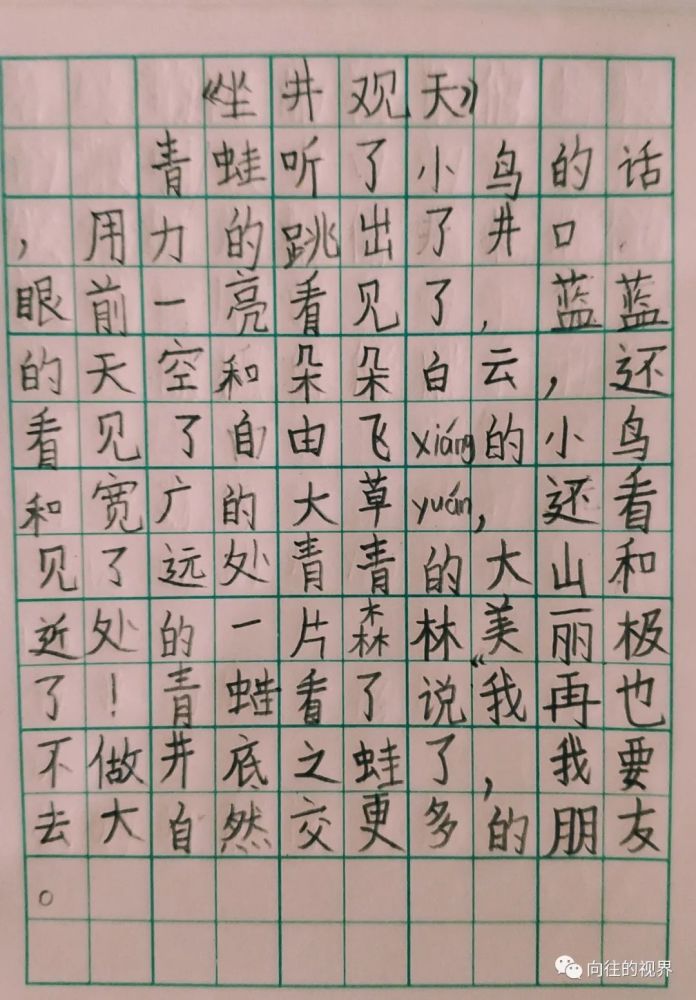 《坐井观天》
青蛙听了小鸟的话
，用力的跳出了井口
眼前一亮看见了，蓝蓝
的天空和朵朵白云，还
看见了自由飞xiáng的小鸟
和宽广的大草yuán，还看
见了远处青青的大山和
近处的一片森林美丽极
了！青蛙看了说“我再也
不做井底之蛙了，我要
去大自然交更多的朋友
。
向往的视界